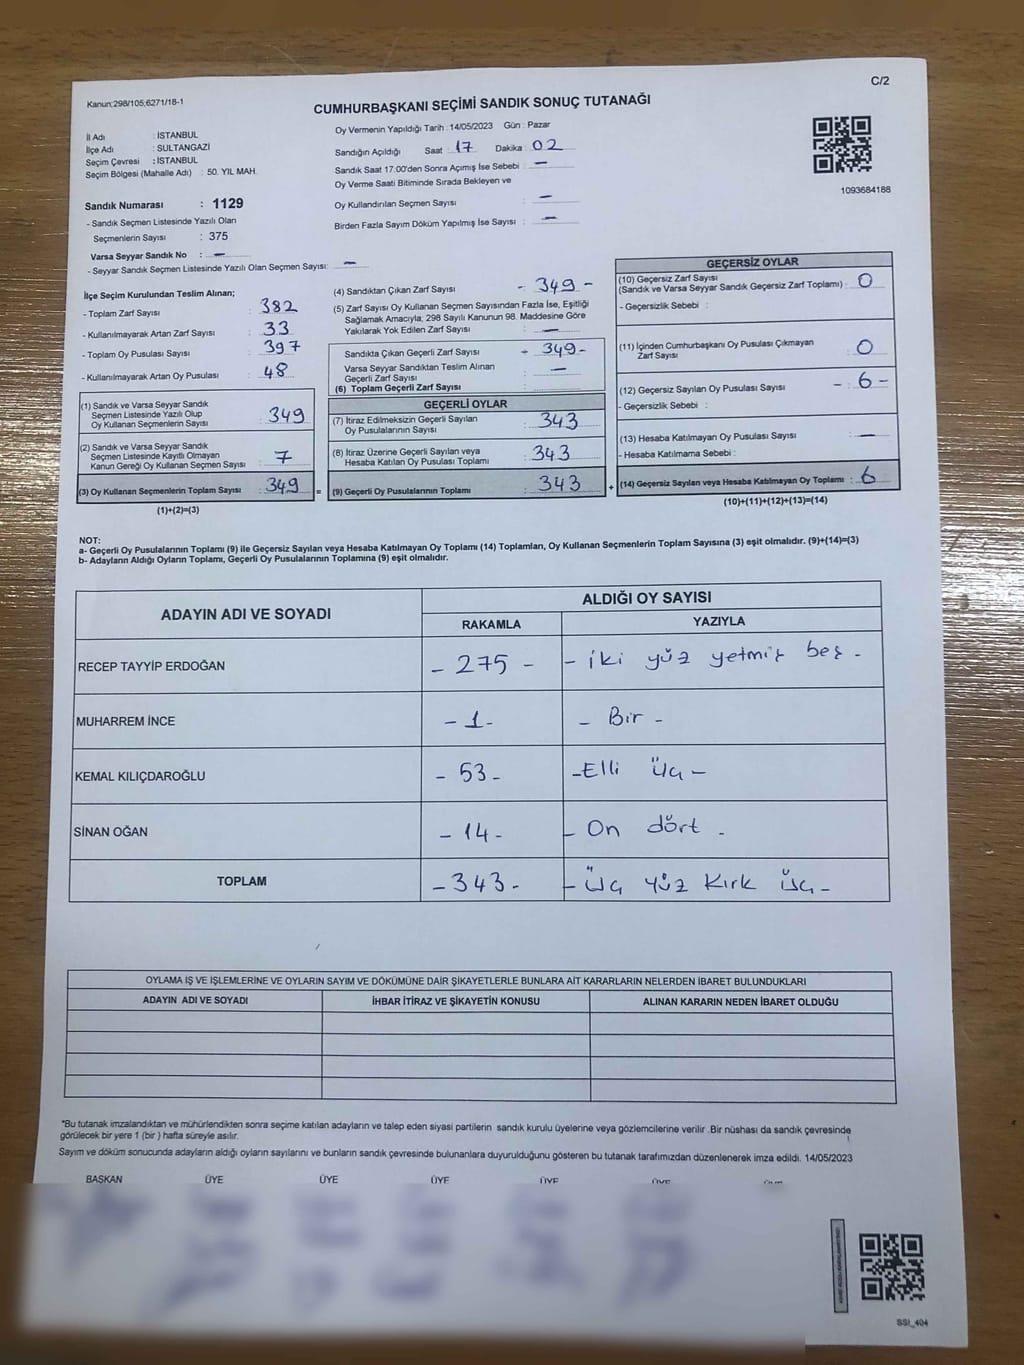 C/2
Kanun;298/105;6271/18-1
CUMHURBAŞKANI SEÇİMİ SANDIK SONUÇ TUTANAĞI
İl Adı : İSTANBUL
İlçe Adı : SULTANGAZİ
Seçim Çevresi : İSTANBUL
Seçim Bölgesi (Mahalle Adı) : 50. YIL MAH.
Sandık Numarası : 1129
- Sandık Seçmen Listesinde Yazılı Olan
Seçmenlerin Sayısı : 375
Varsa Seyyar Sandık No : —
- Seyyar Sandık Seçmen Listesinde Yazılı Olan Seçmen Sayısı: —
Oy Vermenin Yapıldığı Tarih : 14/05/2023 Gün : Pazar
Sandığın Açıldığı Saat : 17 Dakika : 02
Sandık Saat 17.00'den Sonra Açımış İse Sebebi : —
Oy Verme Saati Bitiminde Sırada Bekleyen ve
Oy Kullandırılan Seçmen Sayısı : —
Birden Fazla Sayım Döküm Yapılmış İse Sayısı : —
1093684188
İlçe Seçim Kurulundan Teslim Alınan;
- Toplam Zarf Sayısı : 382
- Kullanılmayarak Artan Zarf Sayısı : 33
- Toplam Oy Pusulası Sayısı : 397
- Kullanılmayarak Artan Oy Pusulası : 48
(1) Sandık ve Varsa Seyyar Sandık
Seçmen Listesinde Yazılı Olup
Oy Kullanan Seçmenlerin Sayısı : 349
(2) Sandık ve Varsa Seyyar Sandık
Seçmen Listesinde Kayıtlı Olmayan
Kanun Gereği Oy Kullanan Seçmen Sayısı : 7
(3) Oy Kullanan Seçmenlerin Toplam Sayısı : 349 =
(1)+(2)=(3)
(4) Sandıktan Çıkan Zarf Sayısı : - 349 -
(5) Zarf Sayısı Oy Kullanan Seçmen Sayısından Fazla İse, Eşitliği
Sağlamak Amacıyla; 298 Sayılı Kanunun 98. Maddesine Göre
Yakılarak Yok Edilen Zarf Sayısı : —
Sandıkta Çıkan Geçerli Zarf Sayısı : - 349-
Varsa Seyyar Sandıktan Teslim Alınan
Geçerli Zarf Sayısı : —
(6) Toplam Geçerli Zarf Sayısı :
GEÇERLİ OYLAR
(7) İtiraz Edilmeksizin Geçerli Sayılan
Oy Pusulalarının Sayısı : 343
(8) İtiraz Üzerine Geçerli Sayılan veya
Hesaba Katılan Oy Pusulası Toplamı : 343
(9) Geçerli Oy Pusulalarının Toplamı : 343 +
GEÇERSİZ OYLAR
(10) Geçersiz Zarf Sayısı
(Sandık ve Varsa Seyyar Sandık Geçersiz Zarf Toplamı) : 0
- Geçersizlik Sebebi :
(11) İçinden Cumhurbaşkanı Oy Pusulası Çıkmayan
Zarf Sayısı : 0
(12) Geçersiz Sayılan Oy Pusulası Sayısı : - 6 -
- Geçersizlik Sebebi :
(13) Hesaba Katılmayan Oy Pusulası Sayısı : —
- Hesaba Katılmama Sebebi :
(14) Geçersiz Sayılan veya Hesaba Katılmayan Oy Toplamı : 6
(10)+(11)+(12)+(13)=(14)
NOT:
a- Geçerli Oy Pusulalarının Toplamı (9) ile Geçersiz Sayılan veya Hesaba Katılmayan Oy Toplamı (14) Toplamları, Oy Kullanan Seçmenlerin Toplam Sayısına (3) eşit olmalıdır. (9)+(14)=(3)
b- Adayların Aldığı Oyların Toplamı, Geçerli Oy Pusulalarının Toplamına (9) eşit olmalıdır.
ADAYIN ADI VE SOYADI
ALDIĞI OY SAYISI
RAKAMLA YAZIYLA
RECEP TAYYİP ERDOĞAN - 275 - - iki yüz yetmiş beş -
MUHARREM İNCE - 1 - - Bir -
KEMAL KILIÇDAROĞLU - 53 - - Elli üç -
SİNAN OĞAN - 14 - - On dört -
TOPLAM - 343 - - üç yüz Kırk üç -
OYLAMA İŞ VE İŞLEMLERİNE VE OYLARIN SAYIM VE DÖKÜMÜNE DAİR ŞİKAYETLERLE BUNLARA AİT KARARLARIN NELERDEN İBARET BULUNDUKLARI
ADAYIN ADI VE SOYADI İHBAR İTİRAZ VE ŞİKAYETİN KONUSU ALINAN KARARIN NEDEN İBARET OLDUĞU
*Bu tutanak imzalandıktan ve mühürlendikten sonra seçime katılan adayların ve talep eden siyasi partilerin sandık kurulu üyelerine veya gözlemcilerine verilir .Bir nüshası da sandık çevresinde
görülecek bir yere 1 (bir ) hafta süreyle asılır.
Sayım ve döküm sonucunda adayların aldığı oyların sayılarını ve bunların sandık çevresinde bulunanlara duyurulduğunu gösteren bu tutanak tarafımızdan düzenlenerek imza edildi. 14/05/2023
BAŞKAN ÜYE ÜYE ÜYE ÜYE ÜYE
SSI_404